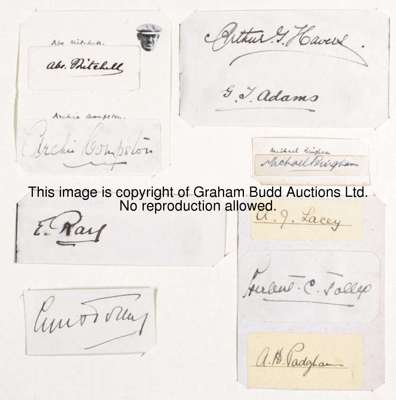 Abe Mitchell.
Abe Mitchell
Archie Compston.
Archie Compston
Arthur G. Havers.
G. J. Adams
Michael Bingham
Michael Bingham
This image is copyright of Graham Budd Auctions Ltd.
No reproduction allowed.
E. Ray
A. J. Lacey
Herbert C. Jolley
A. H. Padgham